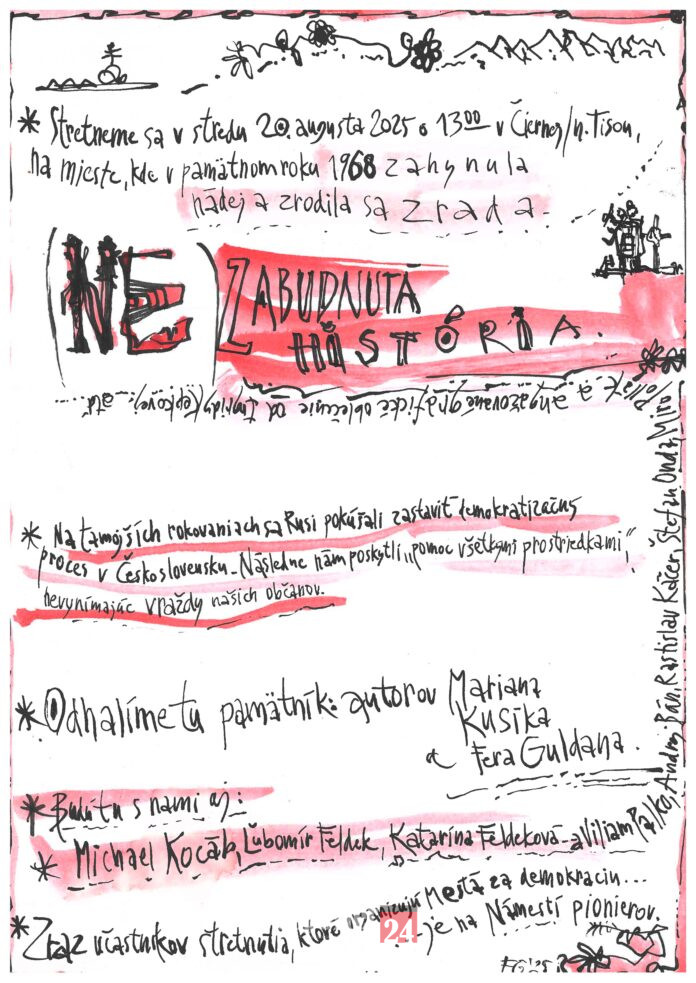 * Stretneme sa v stredu 20. augusta 2025 o 13⁰⁰ v Čiernej/n. Tisou,
na mieste, kde v pamätnom roku 1968 zahynula
nádej a zrodila sa zrada.
(NE)ZABUDNUTÁ
HISTÓRIA.
* Na tamojších rokovaniach sa Rusi pokúšali zastaviť demokratizačný
proces v Československu. Následne nám poskytli „pomoc všetkými prostriedkami",
nevynímajúc vraždy našich občanov.
* Odhalíme tu pamätník: autorov Mariana
Kusika
a Fera Guldana.
* Budú tu s nami aj:
* Michael Kocáb, Ľubomír Feldek, Katarína Feldeková a Viliam Palko, Andrej Bán, Rastislav Káčer, Štefan Onda, Miro Pollák a angažované grafické oblečenie od Ingridy Čepkovej, atď....
* Zraz účastníkov stretnutia, ktoré organizujú Mestá za demokraciu...
je na Námestí pionierov.
24